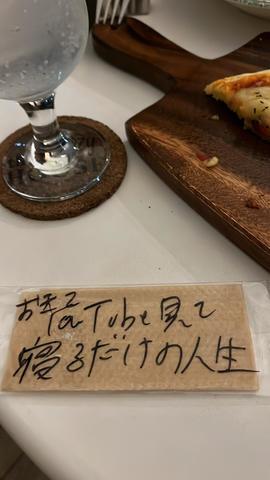 YouTube見て
寝るだけの人生